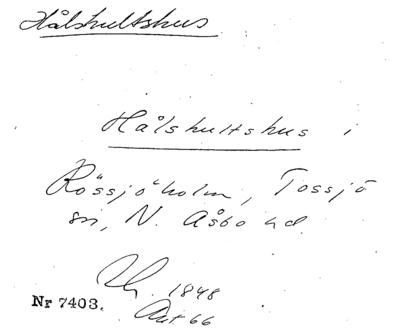 Hålshultshus
Hålshultshus i
Rössjöholm, Tossjö
sn, N. Åsbo hd.
1848
Nr 7403. Akt 66